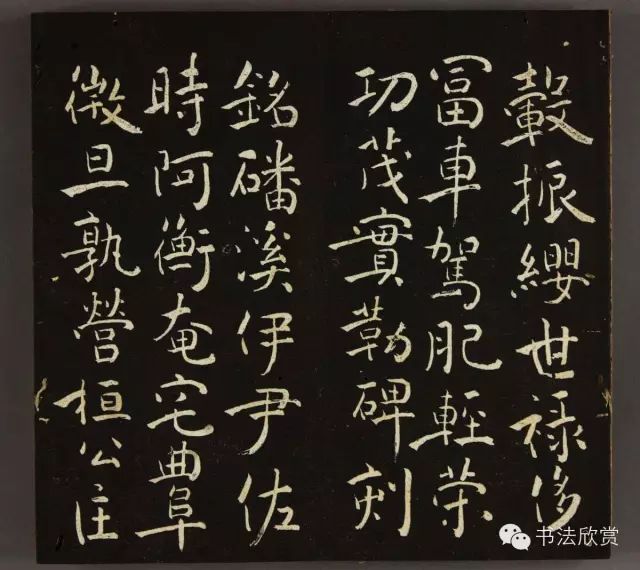 轂振纓世祿侈
富車駕肥輕策
功茂實勒碑刻
銘磻溪伊尹佐
時阿衡奄宅曲阜
微旦孰營桓公匡
书法欣赏